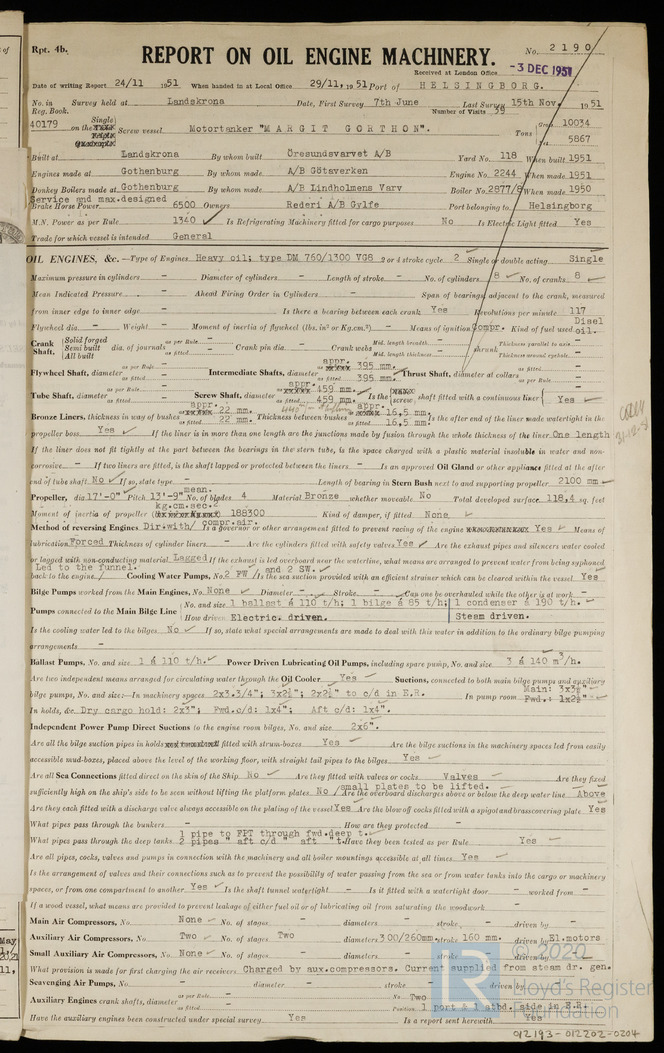 Rpt. 4b.
REPORT ON OIL ENGINE MACHINERY.
No. 2190
Received at London Office -3 DEC 1951
Date of writing Report 24/11 1951 When handed in at Local Office 29/11, 1951 Port of HELSINGBORG.
No. in Survey held at Landskrona Date, First Survey 7th June Last Survey 15th Nov. 1951
Reg. Book. Number of Visits 39
40179 on the Single Screw vessel Motortanker "MARGIT GORTHON". Tons Gross 10034
5867
Built at Landskrona By whom built Öresundsvarvet A/B Yard No. 118 When built 1951
Engines made at Gothenburg By whom made A/B Götaverken Engine No. 2244 When made 1951
Donkey Boilers made at Gothenburg By whom made A/B Lindholmens Varv Boiler No. 2877/8 When made 1950
Service and max. designed
Brake Horse Power 6500 Owners Rederi A/B Gylfe Port belonging to Helsingborg
M.N. Power as per Rule 1340 Is Refrigerating Machinery fitted for cargo purposes No Is Electric Light fitted Yes
Trade for which vessel is intended General
OIL ENGINES, &c.—Type of Engines Heavy oil; type DM 760/1300 VG8 2 or 4 stroke cycle 2 Single or double acting Single
Maximum pressure in cylinders - Diameter of cylinders - Length of stroke - No. of cylinders 8 No. of cranks 8
Mean Indicated Pressure - Ahead Firing Order in Cylinders - Span of bearings, adjacent to the crank, measured
from inner edge to inner edge - Is there a bearing between each crank Yes Revolutions per minute 117
Flywheel dia. - Weight - Moment of inertia of flywheel (lbs. in² or Kg.cm.²) - Means of ignition Compr. Kind of fuel used Disel oil.
Crank Shaft, Solid forged Semi built All built dia. of journals as per Rule - as fitted Crank pin dia. - Crank webs Mid. length breadth - Mid. length thickness shrunk Thickness parallel to axis - Thickness around eyehole
Flywheel Shaft, diameter as per Rule - as fitted Intermediate Shafts, diameter appr. 395 mm. as fitted 395 mm. Thrust Shaft, diameter at collars as fitted as per Rule -
Tube Shaft, diameter as per Rule - as fitted Screw Shaft, diameter appr. 459 mm. as fitted 459 mm. Is the screw shaft fitted with a continuous liner Yes
Bronze Liners, thickness in way of bushes appr. 22 mm. as fitted 22 mm. Thickness between bushes appr. 16,5 mm. as fitted 16,5 mm. Is the after end of the liner made watertight in the
propeller boss Yes If the liner is in more than one length are the junctions made by fusion through the whole thickness of the liner One length
If the liner does not fit tightly at the part between the bearings in the stern tube, is the space charged with a plastic material insoluble in water and non-
corrosive - If two liners are fitted, is the shaft lapped or protected between the liners - Is an approved Oil Gland or other appliance fitted at the after
end of tube shaft No If so, state type - Length of bearing in Stern Bush next to and supporting propeller 2100 mm
Propeller, dia 17'-0" Pitch 13'-9" mean. No. of blades 4 Material Bronze whether moveable No Total developed surface 118,4 sq. feet
Moment of inertia of propeller kg.cm.sec.² 188300 Kind of damper, if fitted None
Method of reversing Engines Dir.with compr.air. Is a governor or other arrangement fitted to prevent racing of the engine Yes Means of
lubrication Forced Thickness of cylinder liners - Are the cylinders fitted with safety valves Yes Are the exhaust pipes and silencers water cooled
or lagged with non-conducting material Lagged If the exhaust is led overboard near the waterline, what means are arranged to prevent water from being syphoned
back to the engine Led to the funnel. Cooling Water Pumps, No. 2 FW and 2 SW. Is the sea suction provided with an efficient strainer which can be cleared within the vessel Yes
Bilge Pumps worked from the Main Engines, No. None Diameter - Stroke - Can one be overhauled while the other is at work -
Pumps connected to the Main Bilge Line No. and size 1 ballast á 110 t/h; 1 bilge á 85 t/h; 1 condenser á 190 t/h.
How driven Electric. driven. Steam driven.
Is the cooling water led to the bilges No If so, state what special arrangements are made to deal with this water in addition to the ordinary bilge pumping
arrangements -
Ballast Pumps, No. and size 1 á 110 t/h. Power Driven Lubricating Oil Pumps, including spare pump, No. and size 3 á 140 m³/h.
Are two independent means arranged for circulating water through the Oil Cooler Yes Suctions, connected to both main bilge pumps and auxiliary
bilge pumps, No. and size:—In machinery spaces 2x3.3/4"; 3x2½"; 2x2½" to c/d in E.R. In pump room Main: 3x3½" Fwd.: 1x2½"
In holds, &c. Dry cargo hold: 2x3"; Fwd.c/d: 1x4"; Aft c/d: 1x4".
Independent Power Pump Direct Suctions to the engine room bilges, No. and size 2x6".
Are all the bilge suction pipes in holds fitted with strum-boxes Yes Are the bilge suctions in the machinery spaces led from easily
accessible mud-boxes, placed above the level of the working floor, with straight tail pipes to the bilges Yes
Are all Sea Connections fitted direct on the skin of the Ship No Are they fitted with valves or cocks Valves Are they fixed
sufficiently high on the ship's side to be seen without lifting the platform plates No/small plates to be lifted. Are the overboard discharges above or below the deep water line Above
Are they each fitted with a discharge valve always accessible on the plating of the vessel Yes Are the blow off cocks fitted with a spigot and brass covering plate Yes
What pipes pass through the bunkers - How are they protected -
What pipes pass through the deep tanks 1 pipe to FPT through fwd.deep t. 2 pipes " aft c/d " aft "t. Have they been tested as per Rule Yes
Are all pipes, cocks, valves and pumps in connection with the machinery and all boiler mountings accessible at all times Yes
Is the arrangement of valves and their connections such as to prevent the possibility of water passing from the sea or from water tanks into the cargo or machinery
spaces, or from one compartment to another Yes Is the shaft tunnel watertight - Is it fitted with a watertight door - worked from -
If a wood vessel, what means are provided to prevent leakage of either fuel oil or of lubricating oil from saturating the woodwork -
Main Air Compressors, No. None No. of stages - diameters - stroke - driven by -
Auxiliary Air Compressors, No. Two No. of stages Two diameters 300/260mm. stroke 160 mm. driven by El.motors
Small Auxiliary Air Compressors, No. None No. of stages - diameters - stroke - driven by -
What provision is made for first charging the air receivers Charged by aux.compressors. Current supplied from steam dr. gen.
Scavenging Air Pumps, No. - diameter - stroke - driven by -
Auxiliary Engines crank shafts, diameter as per Rule - as fitted No. Two Position 1 port & 1 stbd. side in E.R.
Have the auxiliary engines been constructed under special survey Yes Is a report sent herewith Yes
© 2020
Lloyd's Register
Foundation
012193-012202-0204